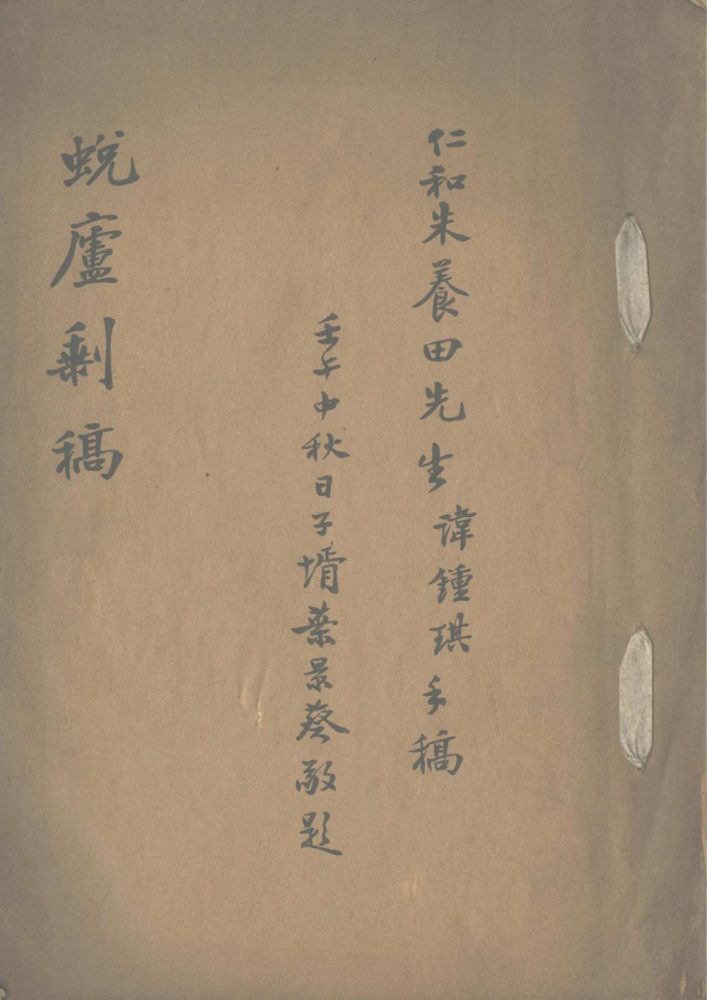 仁和朱養田先生諱鍾琪手稿
壬午中秋日子壻葉景葵敬題
蛻廬剩稿